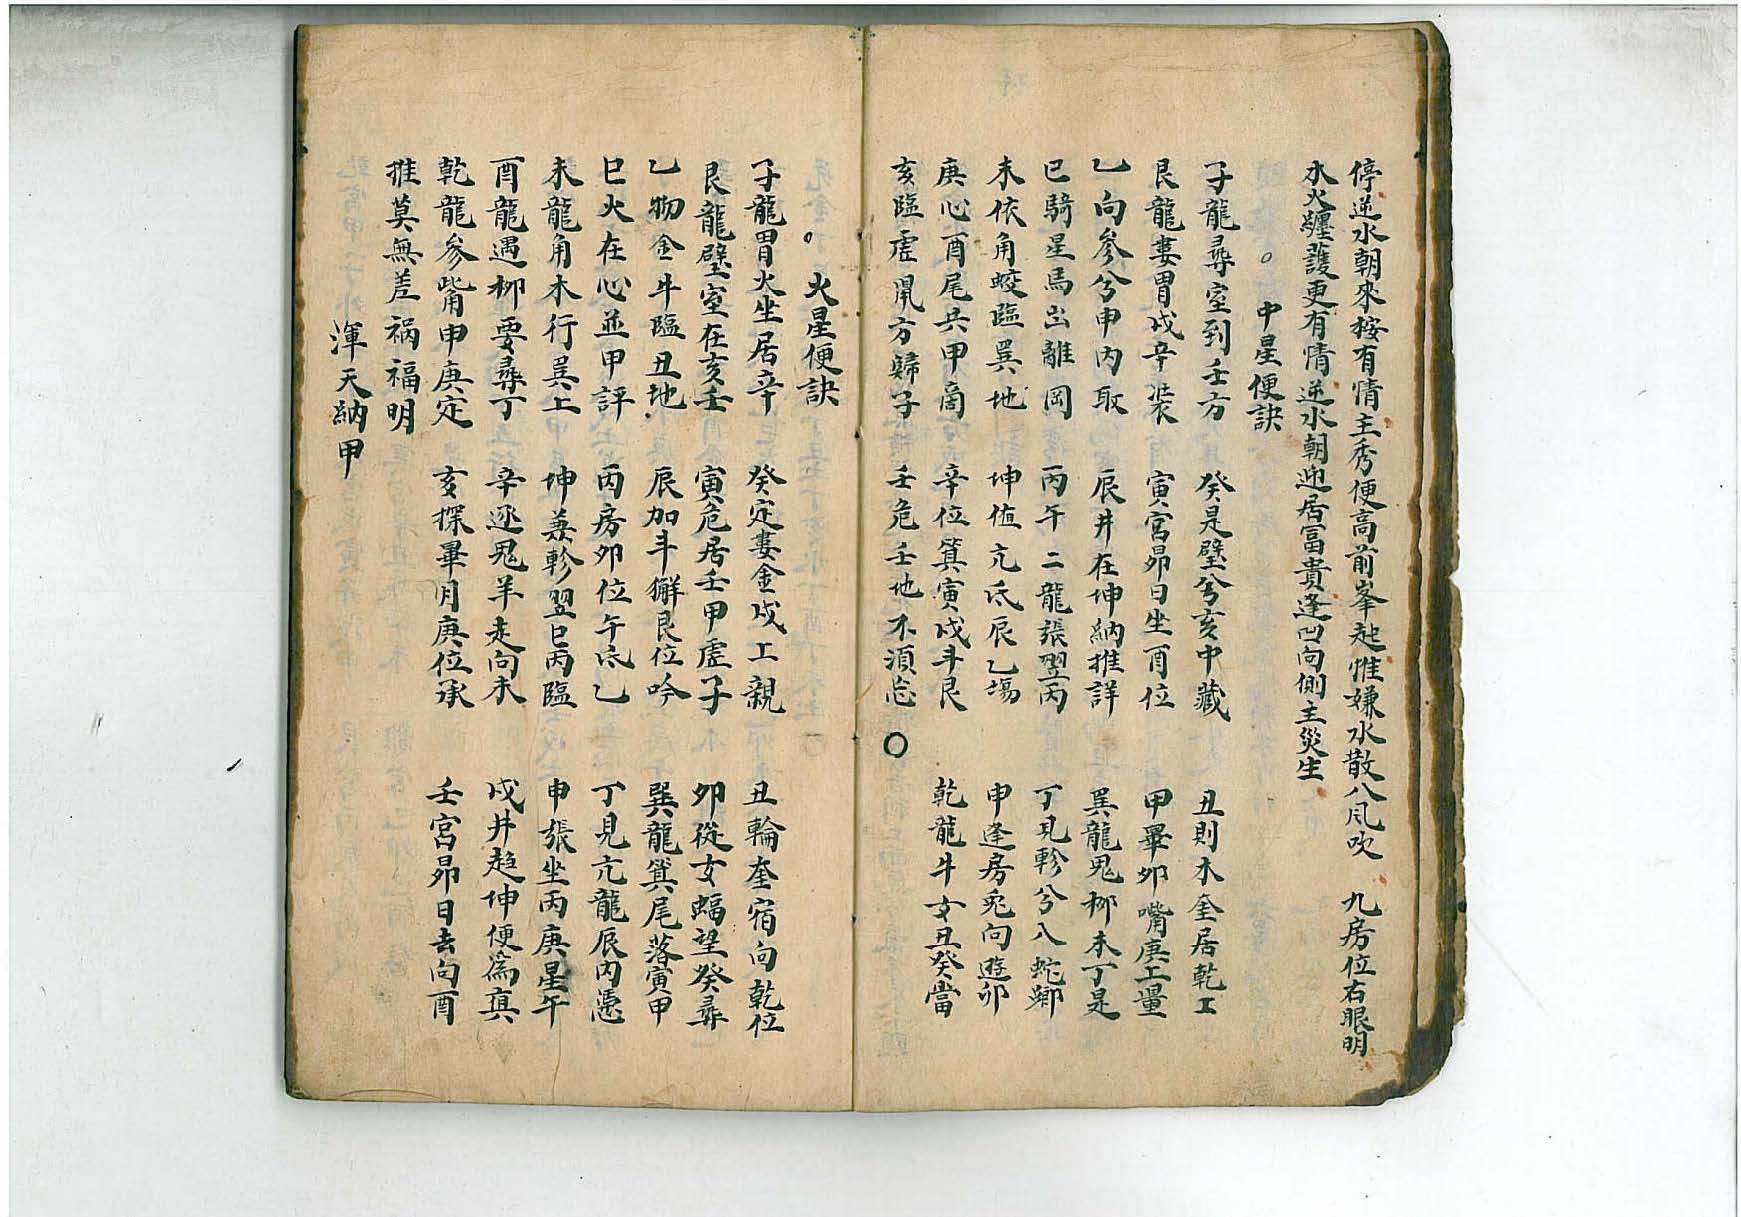 停逆水朝來接有情主秀便高前峯起惟嫌水散八風吹　九房位右眼明
水火纏護更有情逆水朝迎居富貴逢凹向側主災生
。中星便訣
子龍尋室到壬方　癸是壁兮亥中藏　丑則木奎居乾工
艮龍婁胃戌辛裝　寅宮昴日坐酉位　甲畢卯嘴庚工量
乙向参兮申內取　辰井在坤納推詳　巽龍鬼柳未丁是
巳騎星馬出離岡　丙午二龍張翌丙　丁見軫兮八蛇鄉
未依角蛟臨巽地　坤值亢氐辰乙場　申逢房兎向遊卯
庚心酉尾共甲啇　辛位箕寅戌斗艮　乾龍牛女丑癸當
亥臨虛鼠方歸子　壬危壬地不須忘〇
。火星便訣
子龍胃火坐居辛　癸定婁金戌工親　丑輪奎宿向乾位
艮龍壁室在亥壬　寅危居壬甲虛子　卯從女蝠望癸尋
乙物金牛臨丑地　辰加斗獬艮位吟　巽龍箕尾落寅甲
巳火在心並甲評　丙房卯位午氐乙　丁見亢龍辰內憑
未龍角木行巽上　坤兼軫翌巳丙臨　申張坐丙庚星午
酉龍遇柳要尋丁　辛逐鬼羊走向未　戌井趋坤便爲真
乾龍参觜申庚定　亥探畢月庚位承　壬宮昴日去向酉
推莫無差祸福明
渾天納甲